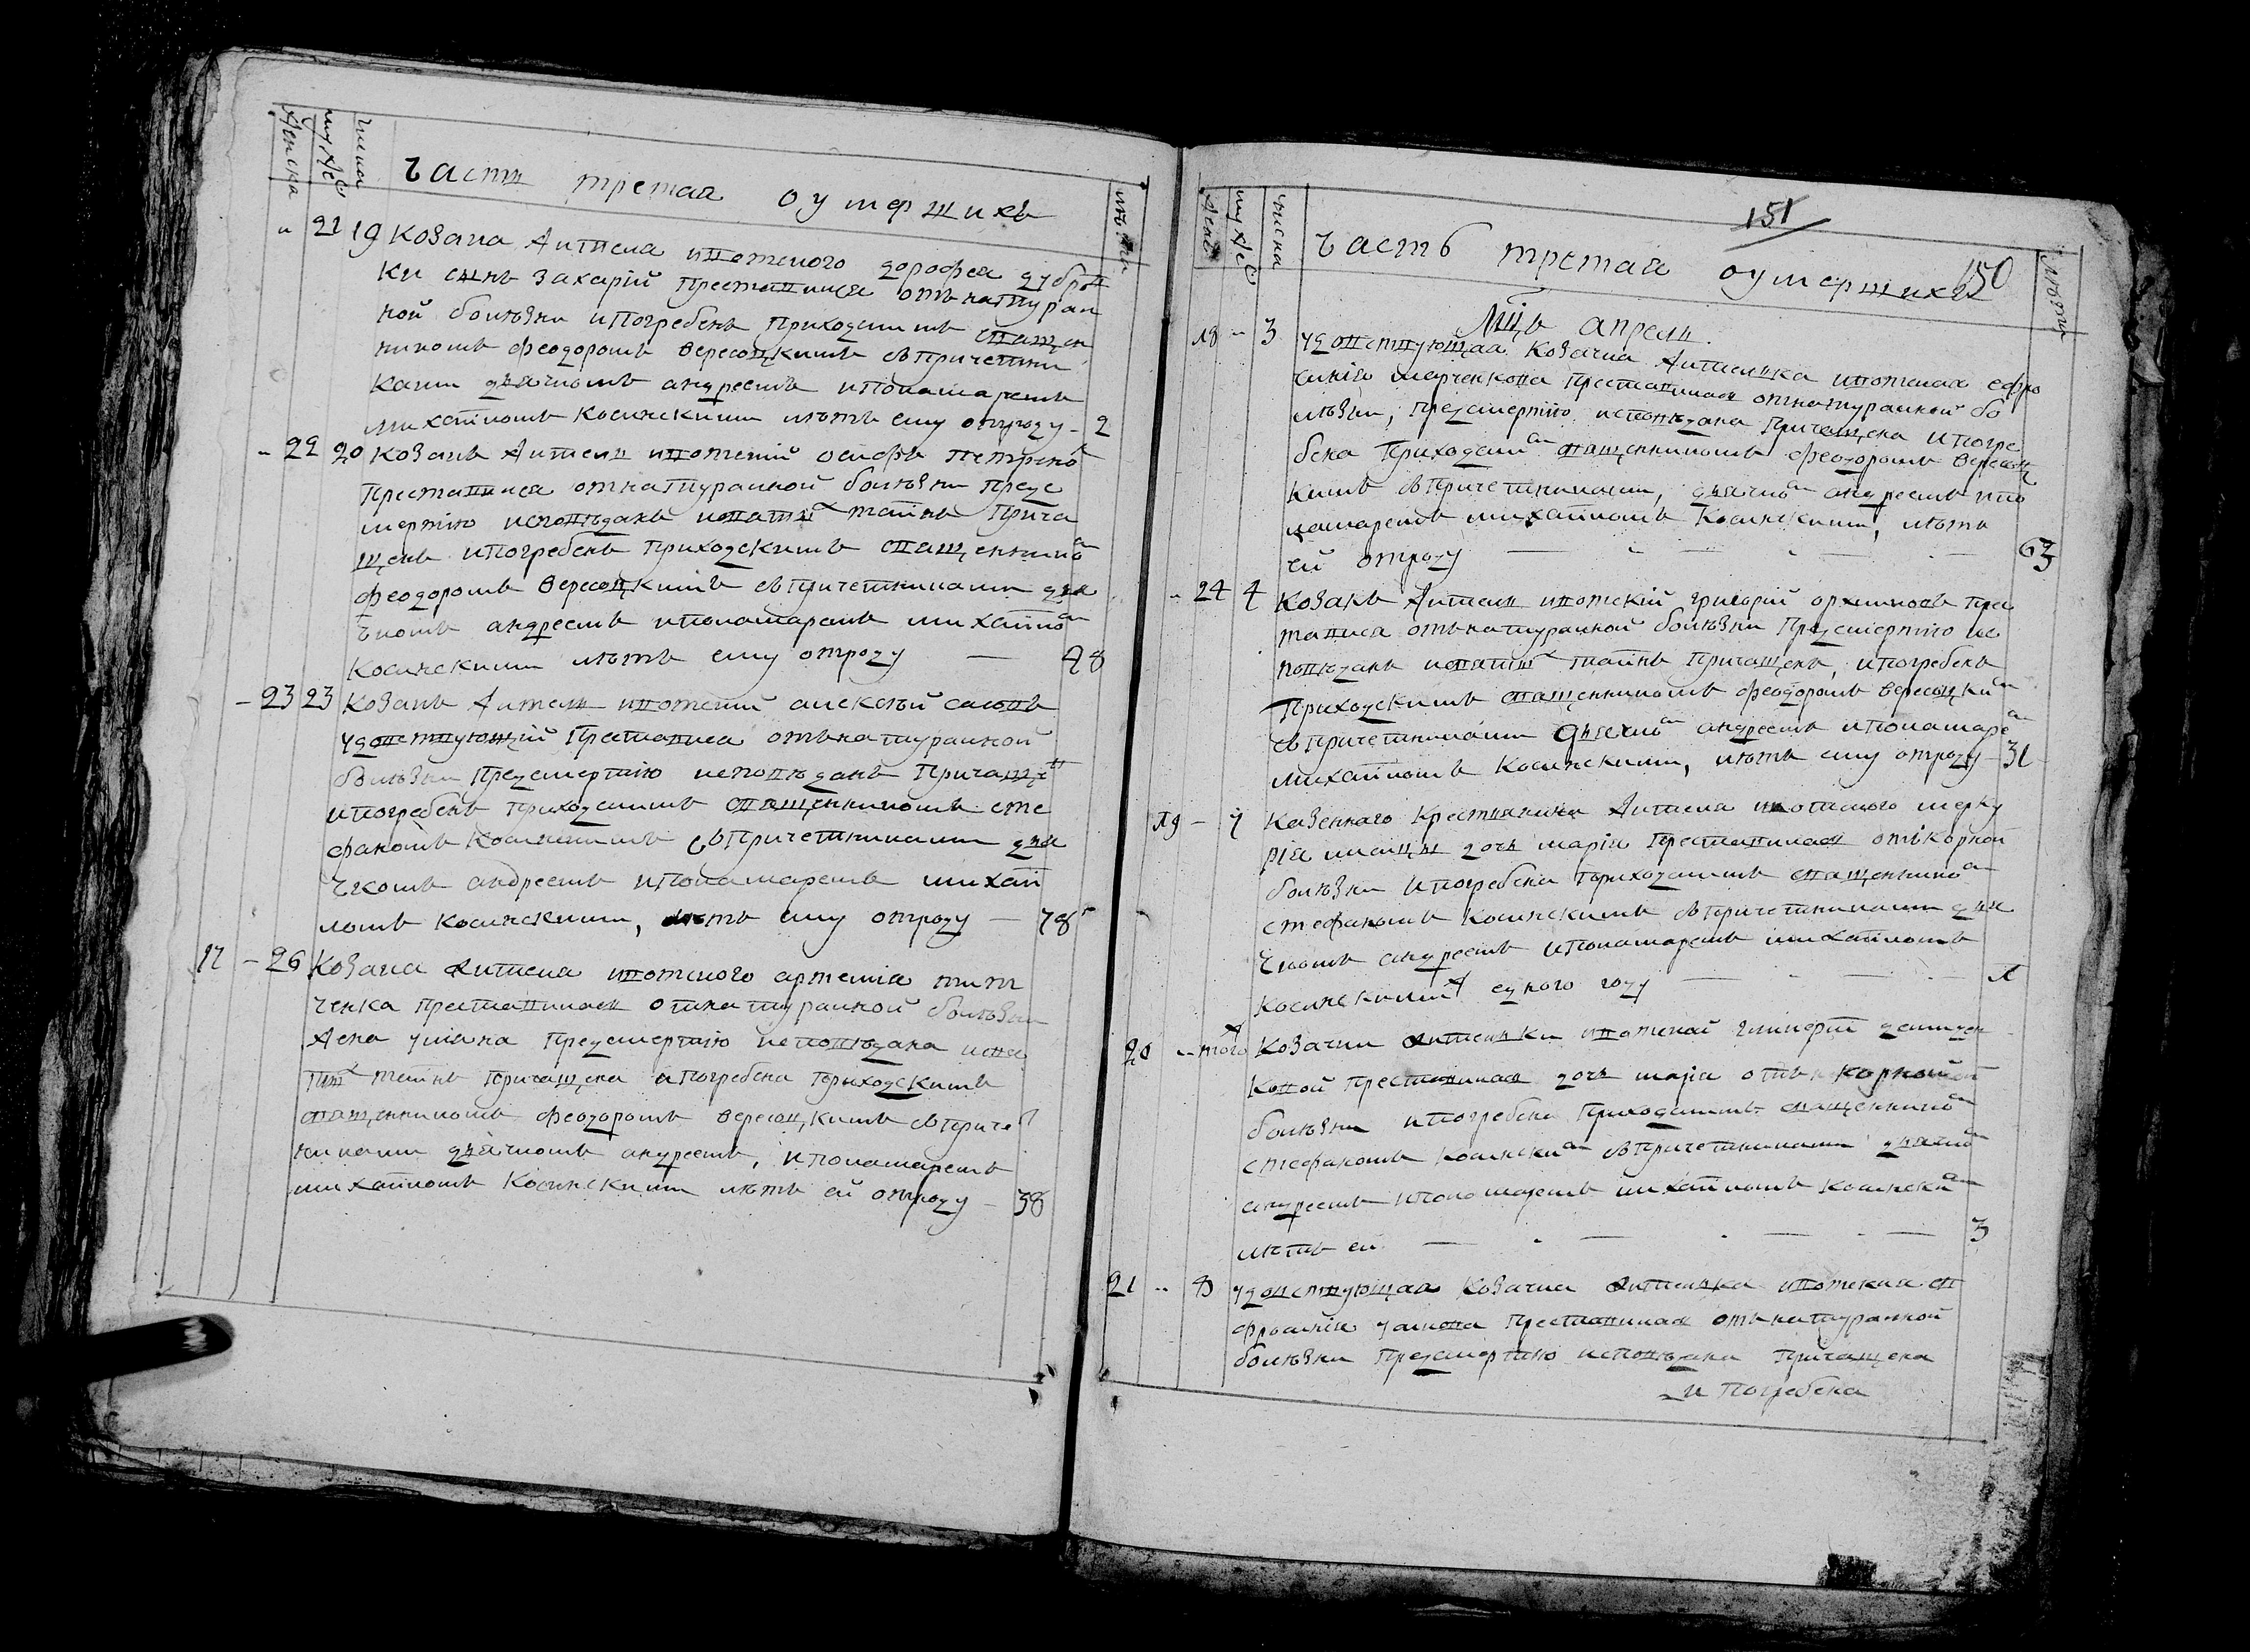 женска
муже
числа
Часть третая оумершихъ
лѣта
" 21 19 Козака жителя ивотского дорофея дубров
ки сынъ Захарій преставился отъ натурал
ной болѣзни и погребенъ приходскимъ священ
никомъ феодоромъ вересоцкимъ съ причетни
ками дьячкомъ андреемъ и пономаремъ
михайломъ Косинскими лѣтъ ему отроду - 2
- 22 20 Козакъ Житель ивотскій осифъ петренко
преставился отъ натуралной болѣзни предс
мертію исповѣданъ и святыхъ таинъ прича
щенъ и погребенъ приходскимъ священником
феодоромъ вересоцкимъ съ причетниками дья
чкомъ андреемъ и пономаремъ михайлом
Косинскими лѣтъ ему отроду — 48
- 23 23 Козакъ Житель ивотскій алексѣй
удовствующій преставился отъ натуралной
болѣзни предсмертію исповѣданъ причащен
и погребенъ приходскимъ священникомъ сте
фаномъ Косинскимъ съ причетниками дья
чкомъ андреемъ и пономаремъ михай
ломъ косинскими, лѣтъ ему отроду — 78
17 - 26 Козака жителя ивотского артемія тит
ченка преставилася от натуралной болѣзни
жена улияна предсмертію исповѣдана и свя
тыхъ таинъ причащена и погребена приходскимъ
священникомъ феодоромъ вересоцкимъ съ приче
никами дьячкомъ андреемъ, и пономаремъ
михайломъ Косинскими лѣтъ ей отроду - 38
151
150
жено
муже
числа
Часть третая оумершихъ
Лѣта
Мцъ апрель.
18 - 3 удовствующая Козачка Жителька ивотская ефро
синія марченкова преставилася от натуралной бо
лѣзни, предсмертію исповѣдана причащена и погре
бена приходским священникомъ феодоромъ вересоц
кимъ съ причетниками, дьячком андреемъ и по
номаремъ михайломъ Косинскими, лѣтъ
ей отроду — 63
- 24 4 Козакъ Житель ивотскій григорій прес
тавился отъ натуралной болѣзни предсмертію ис
повѣданъ и святых таинъ причащенъ, и погребенъ
приходскимъ священникомъ феодоромъ вересоцким
съ причетниками дьячком андреемъ и пономаре
михайломъ Косинскими, лѣтъ ему отроду - 31
19 - 7 Казенного Крестянина Жителя ивотского мерку
рія дочь марія преставилася отъ корной
болѣзни и погребена приходскимъ священником
стефаномъ Косинскимъ съ причетниками дья
чкомъ андреемъ и пономаремъ михайломъ
косинскими едного году — 1
20 - того Козачки жительки ивотской гликерій демчен
ковой преставилася дочь марія отъ корной
болѣзни и погребена приходскимъ священником
стефаномъ косинским съ причетниками дьячком
андреемъ и пономаремъ михайломъ косинским
лѣтъ ей — 3
21 - 8 удовствующая Козачка жителька ивотская ев
фросинія преставилася отъ натуралной
болѣзни предсмертію исповѣдана причащена
и погребена